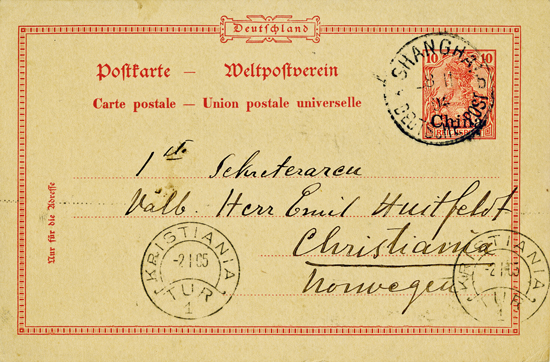 Deutschland
Postkarte — Weltpostverein
Carte postale — Union postale universelle
10 10
China
SHANGHAI
DEUTSCHE POST
Nur für die Adresse
1st Sekreteraren
Valb. Herr Emil Huitfeldt
Christiania
Norwegen
KRISTIANIA
-2 I 05
TUR
1
KRISTIANIA
-2 I 05
TUR
1